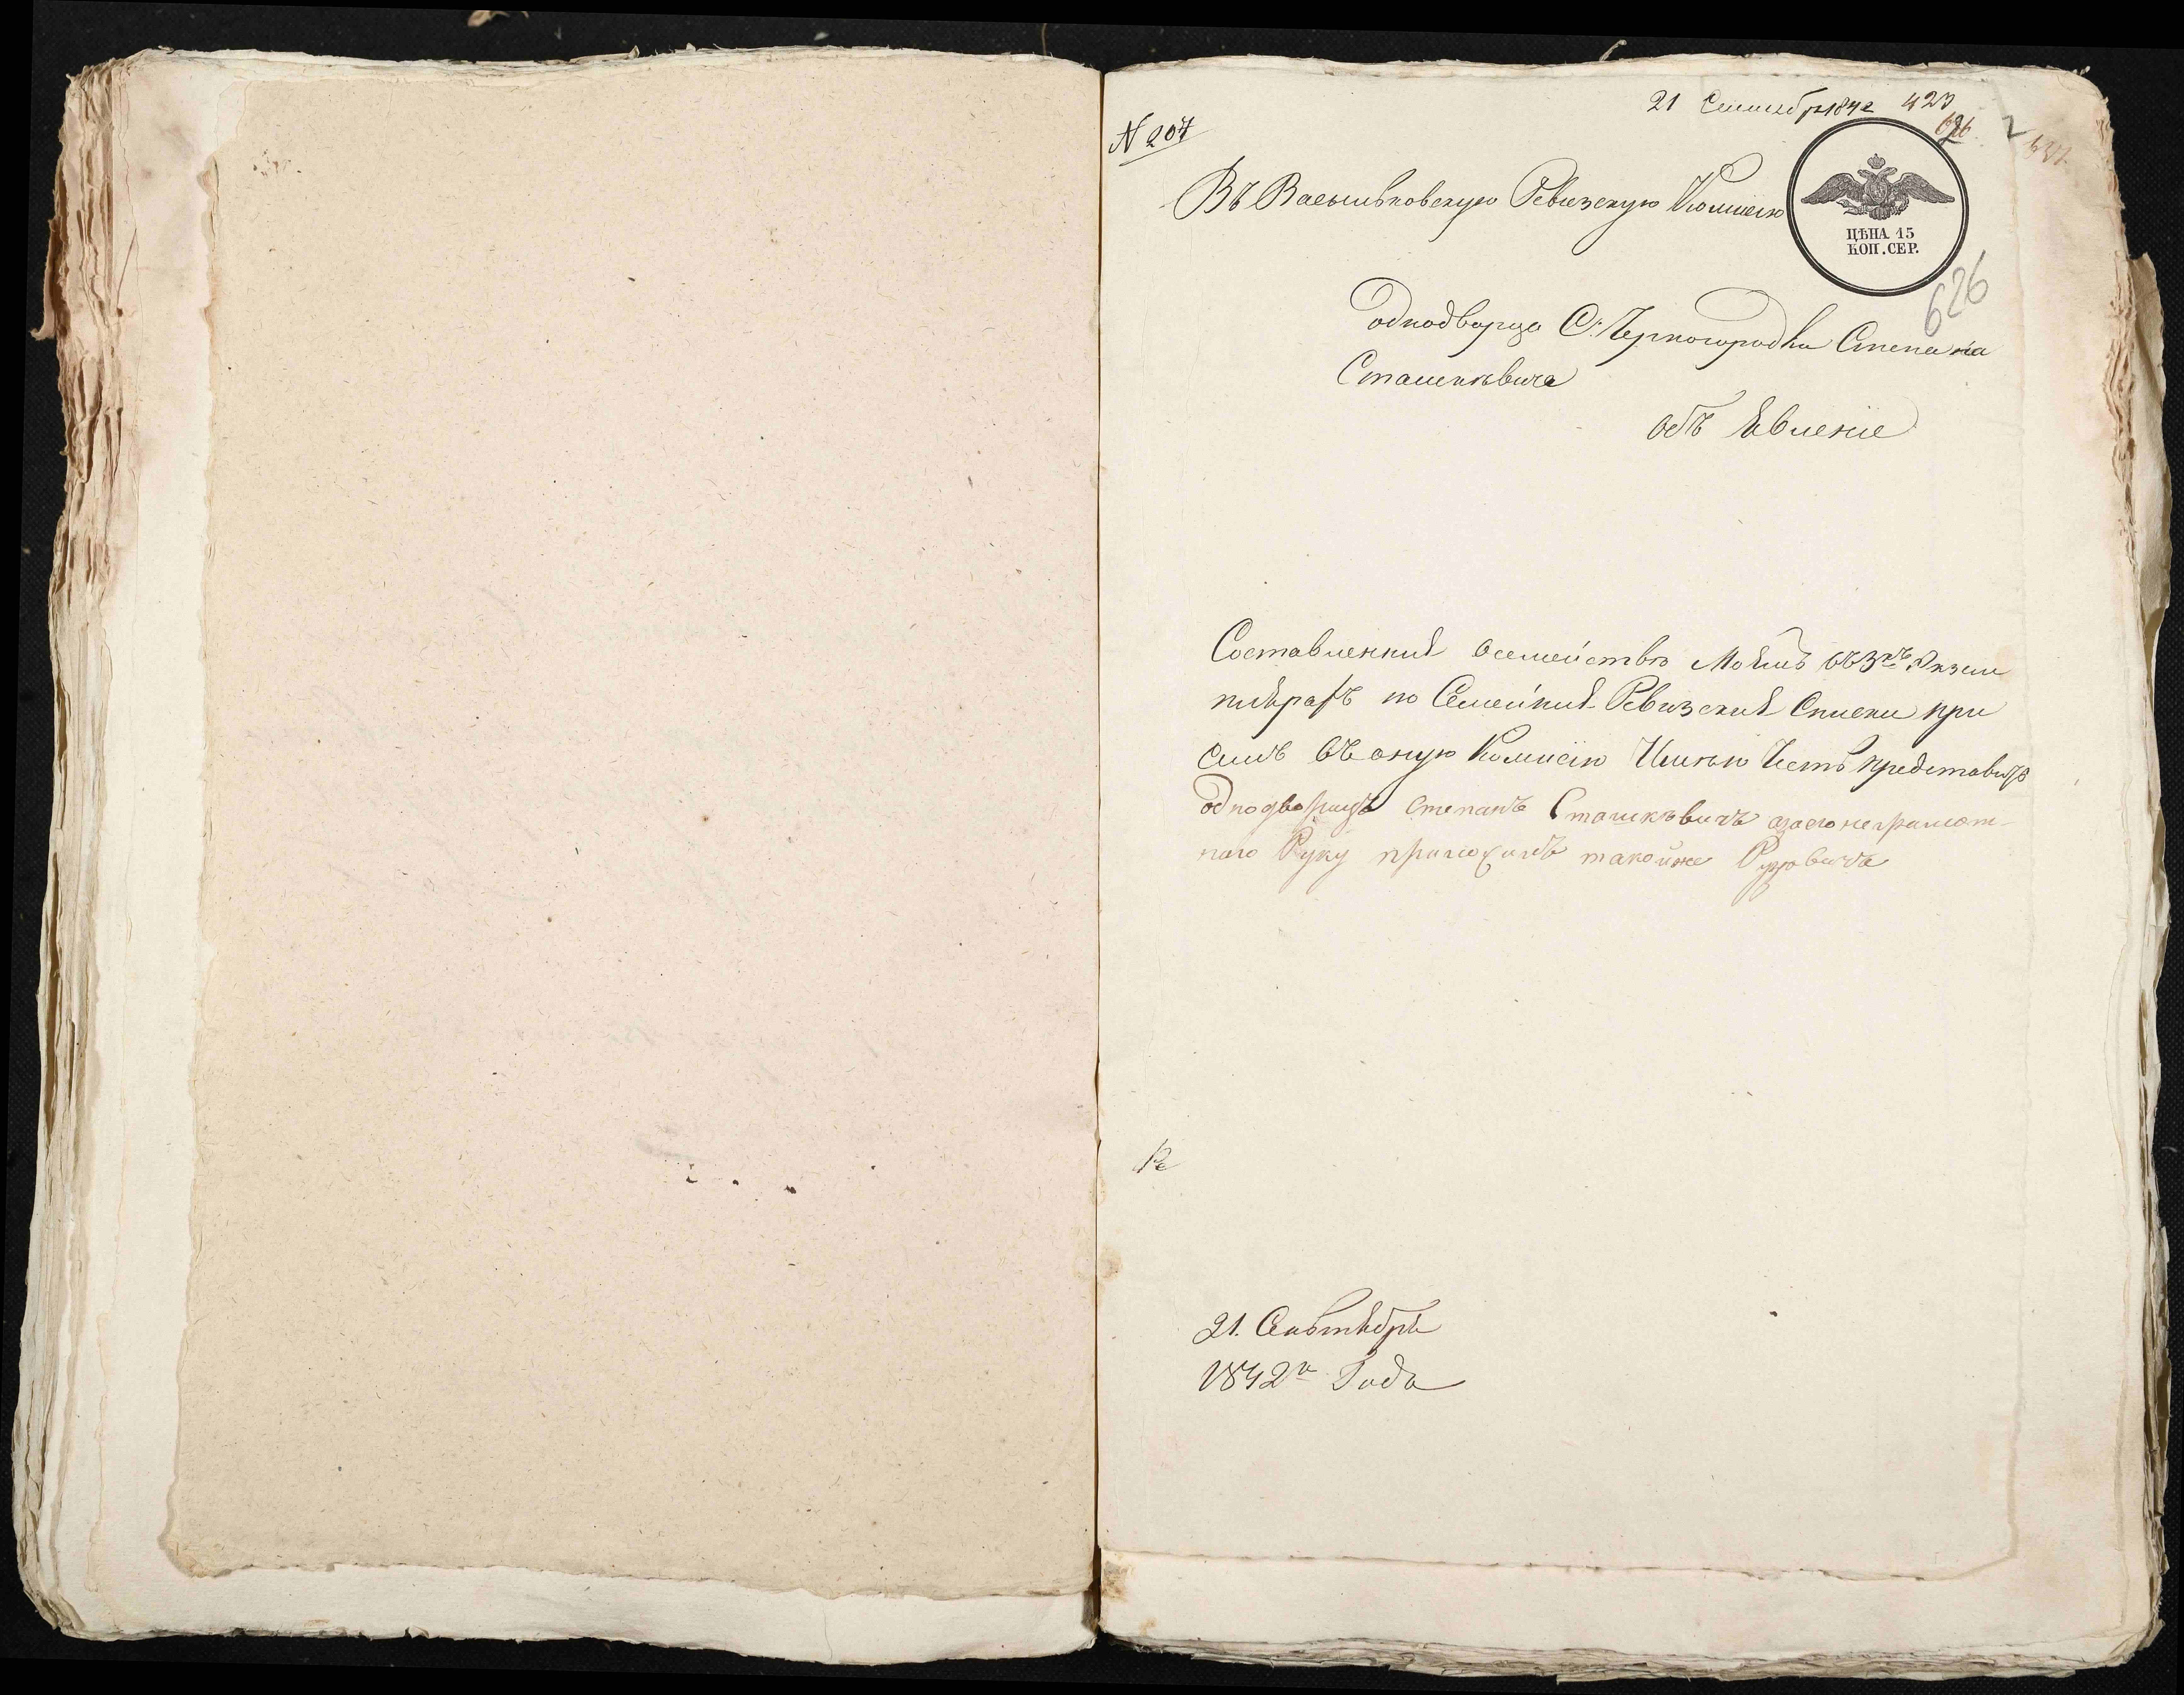 21 Сентябр 1842 423
626
2
N 207
Въ Васыльковскую Ревизскую Комисію
ЦѢНА 15
КОП. СЕР.
626
однодворца С. Чорногородки Степана
Сташкѣвича
объ Явленіе
Составленний осемействѣ Моѣмъ въ 3хъ Экзем
плярахъ по Семейний Ревизский Списки при
семъ въ оную Комисію Имѣю Честь представить
однодворецъ Степанъ Сташкѣвичъ азаего неграмот-
ного Руку приложилъ такойже
21. Сенътября
1842го Года